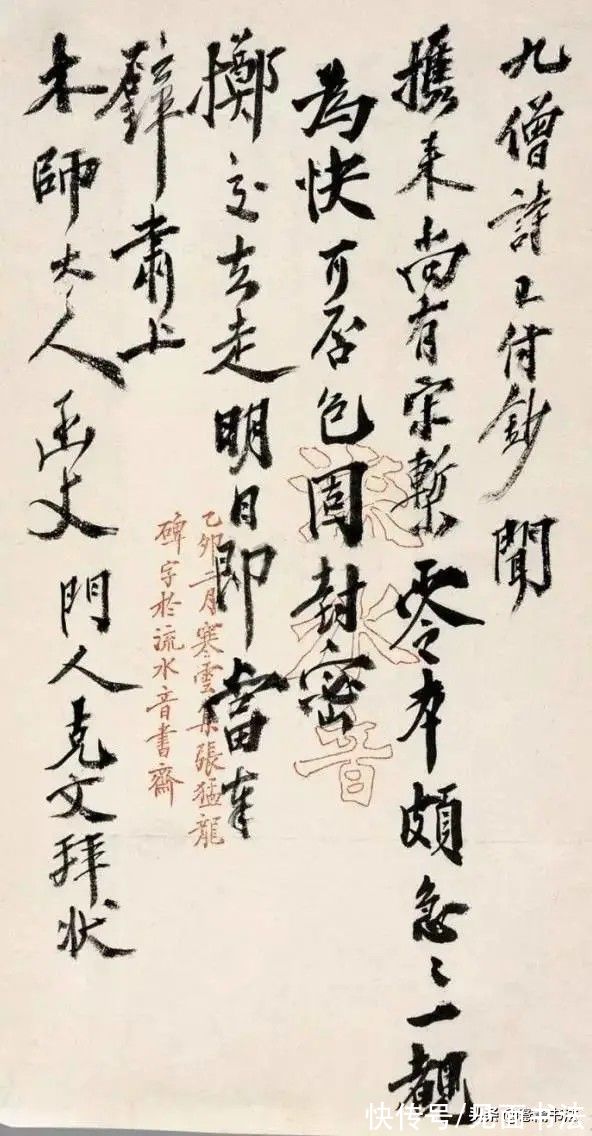 九僧詩已付鈔聞
攜来尚有宋槧零本頗急〻一覩
為快可否包固封密
擲交去走明日即當奉
璧肅上
木師大人函丈門人克文拜状
流水音
乙卯二月寒雲集張猛龍
碑字於流水音書齋
快传号/见面书法